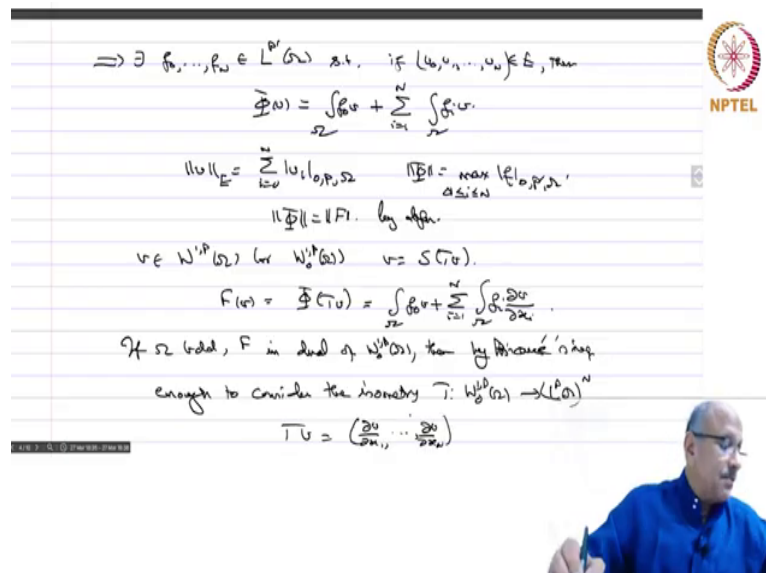 ⟹ ∃ f₀,...,f_N ∈ L^{p'}(Ω) s.t. if (v₀,v₁,...,v_N) ∈ E, then
Φ(v) = ∫_Ω f₀v + Σ_{i=1}^N ∫_Ω fᵢvᵢ
NPTEL
‖v‖_E = Σ_{i=0}^N |vᵢ|_{0,p,Ω} ‖Φ‖ = max_{0≤i≤N} |fᵢ|_{0,p',Ω}.
‖Φ‖ = ‖F‖. by defn.
v ∈ W^{1,p}(Ω) (or W₀^{1,p}(Ω)) v = S(Tv).
F(v) = Φ(Tv) = ∫_Ω f₀v + Σ_{i=1}^N ∫_Ω fᵢ ∂v/∂xᵢ.
If Ω bdd, F in dual of W₀^{1,p}(Ω), then by Poincaré's ineq
enough to consider the isometry T: W₀^{1,p}(Ω) → (L^p(Ω))^N
Tv = (∂v/∂x₁, ..., ∂v/∂x_N)